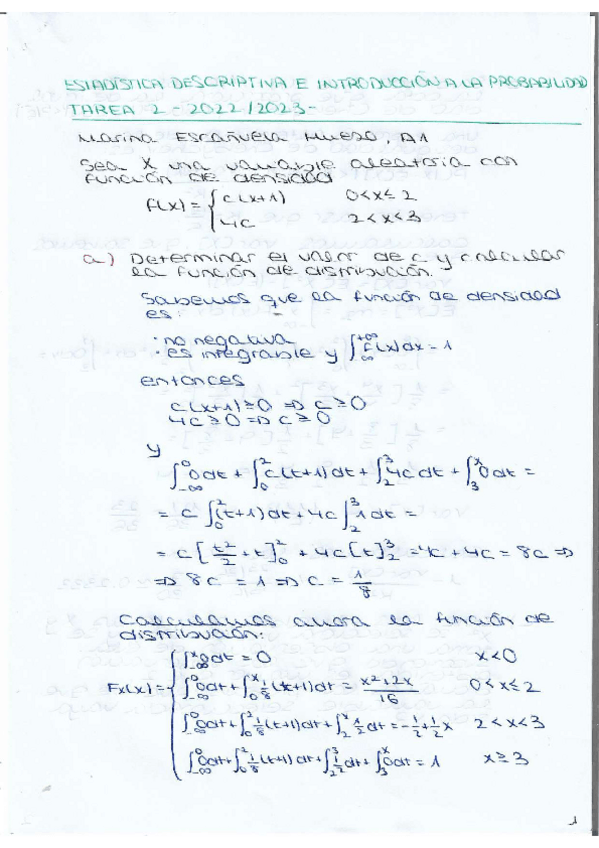 ESTADÍSTICA DESCRIPTIVA E INTRODUCCIÓN A LA PROBABILIDAD
TAREA 2 - 2022/2023-
Marina Escañuela Hueso, A1
Sea X una variable aleatoria con
función de densidad
f(x) = { c(x+1) 0<x≤2
4c 2<x<3
a) Determinar el valor de c y calcular
la función de distribución.
Sabemos que la función de densidad
es:
· no negativa
· es integrable y ∫_{-∞}^{+∞} f(x)dx = 1
entonces
c(x+1) ≥ 0 ⇒ c ≥ 0
4c ≥ 0 ⇒ c ≥ 0
y
∫_{-∞}^{0} 0dt + ∫_{0}^{2} c(t+1)dt + ∫_{2}^{3} 4c dt + ∫_{3}^{x} 0dt =
= c ∫_{0}^{2} (t+1)dt + 4c ∫_{2}^{3} 1dt =
= c [t²/2 + t]_{0}^{2} + 4c [t]_{2}^{3} = 4c + 4c = 8c ⇒
⇒ 8c = 1 ⇒ c = 1/8
Calculamos ahora la función de
distribución:
∫_{-∞}^{x} 0dt = 0 x<0
Fx(x) = { ∫_{-∞}^{0} 0dt + ∫_{0}^{x} 1/8 (t+1)dt = (x²+2x)/16 0<x≤2
∫_{-∞}^{0} 0dt + ∫_{0}^{2} 1/8 (t+1)dt + ∫_{2}^{x} 1/2 dt = -1/2 + 1/2 x 2<x<3
∫_{-∞}^{0} 0dt + ∫_{0}^{2} 1/8 (t+1)dt + ∫_{2}^{3} 1/2 dt + ∫_{3}^{x} 0dt = 1 x≥3
1